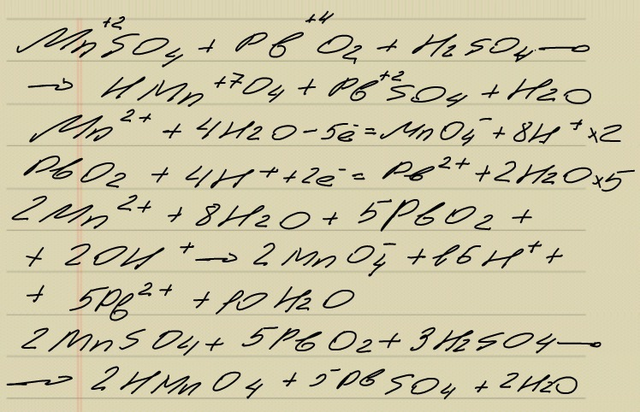 Mn⁺²SO₄ + Pb⁺⁴O₂ + H₂SO₄ →
→ HMn⁺⁷O₄ + Pb⁺²SO₄ + H₂O
Mn²⁺ + 4H₂O - 5ē = MnO₄⁻ + 8H⁺ ×2
PbO₂ + 4H⁺ + 2ē = Pb²⁺ + 2H₂O ×5
2Mn²⁺ + 8H₂O + 5PbO₂ +
+ 20H⁺ → 2MnO₄⁻ + 16H⁺ +
+ 5Pb²⁺ + 10H₂O
2MnSO₄ + 5PbO₂ + 3H₂SO₄ →
→ 2HMnO₄ + 5PbSO₄ + 2H₂O